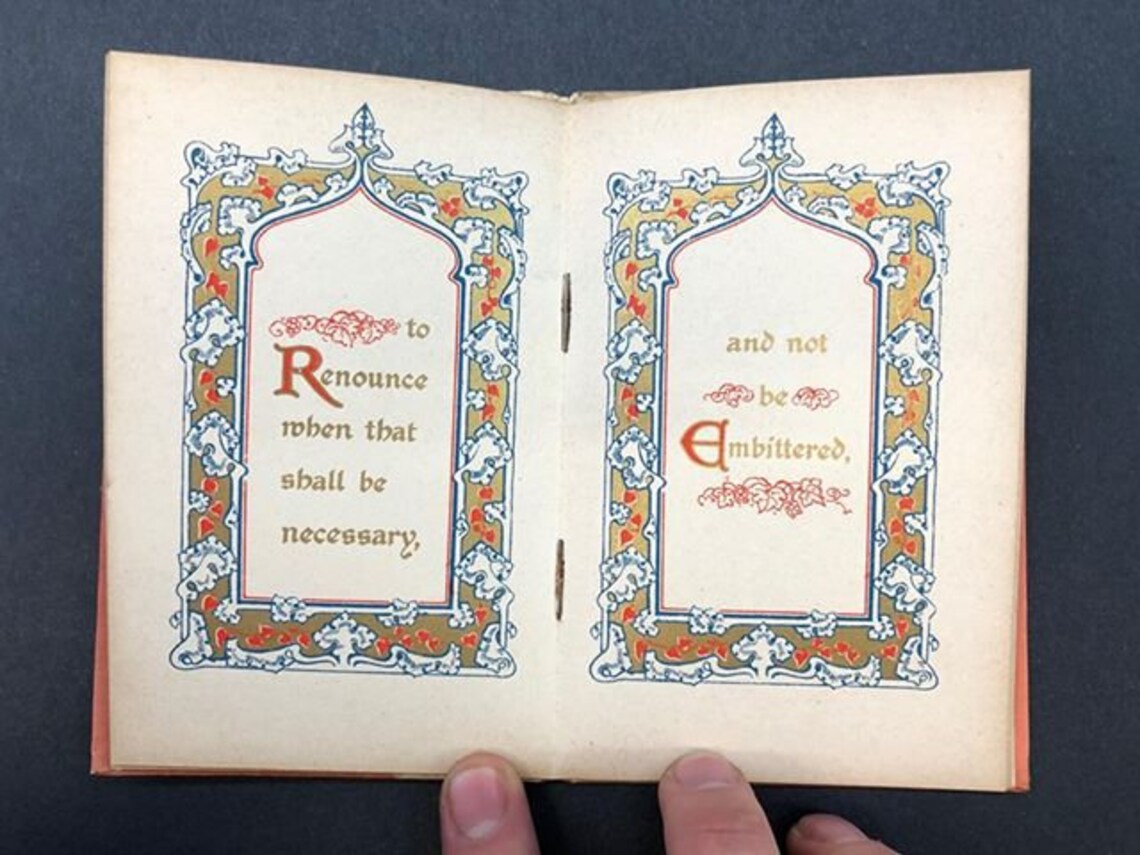 to
Renounce
when that
shall be
necessary,
and not
be
Embittered,